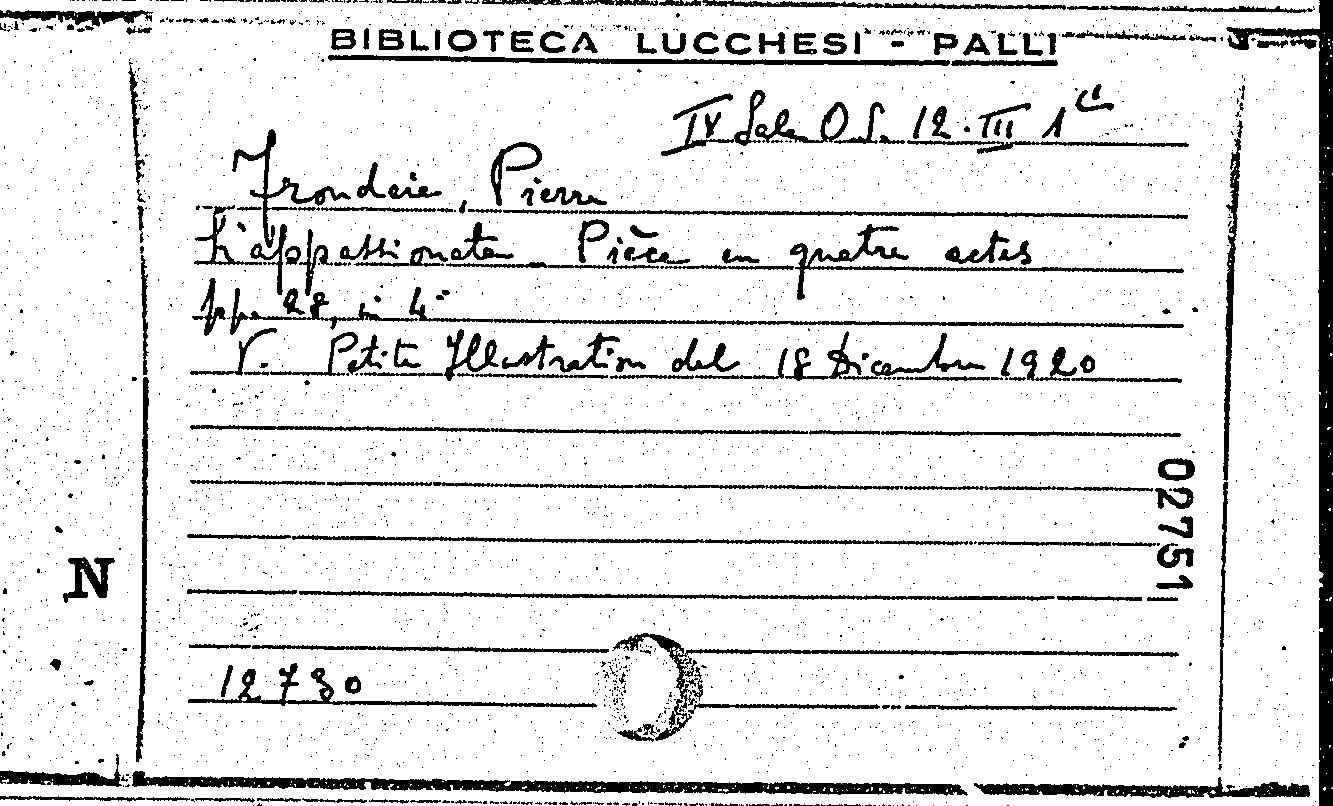 BIBLIOTECA LUCCHESI - PALLI
IV Sala O S. 12. III 1
Frondaie, Pierre
L'appassionata - Pièce en quatre actes
pp. 28, in 4°
V. Petite Illustration del 18 Dicembre 1920
02751
N
12780